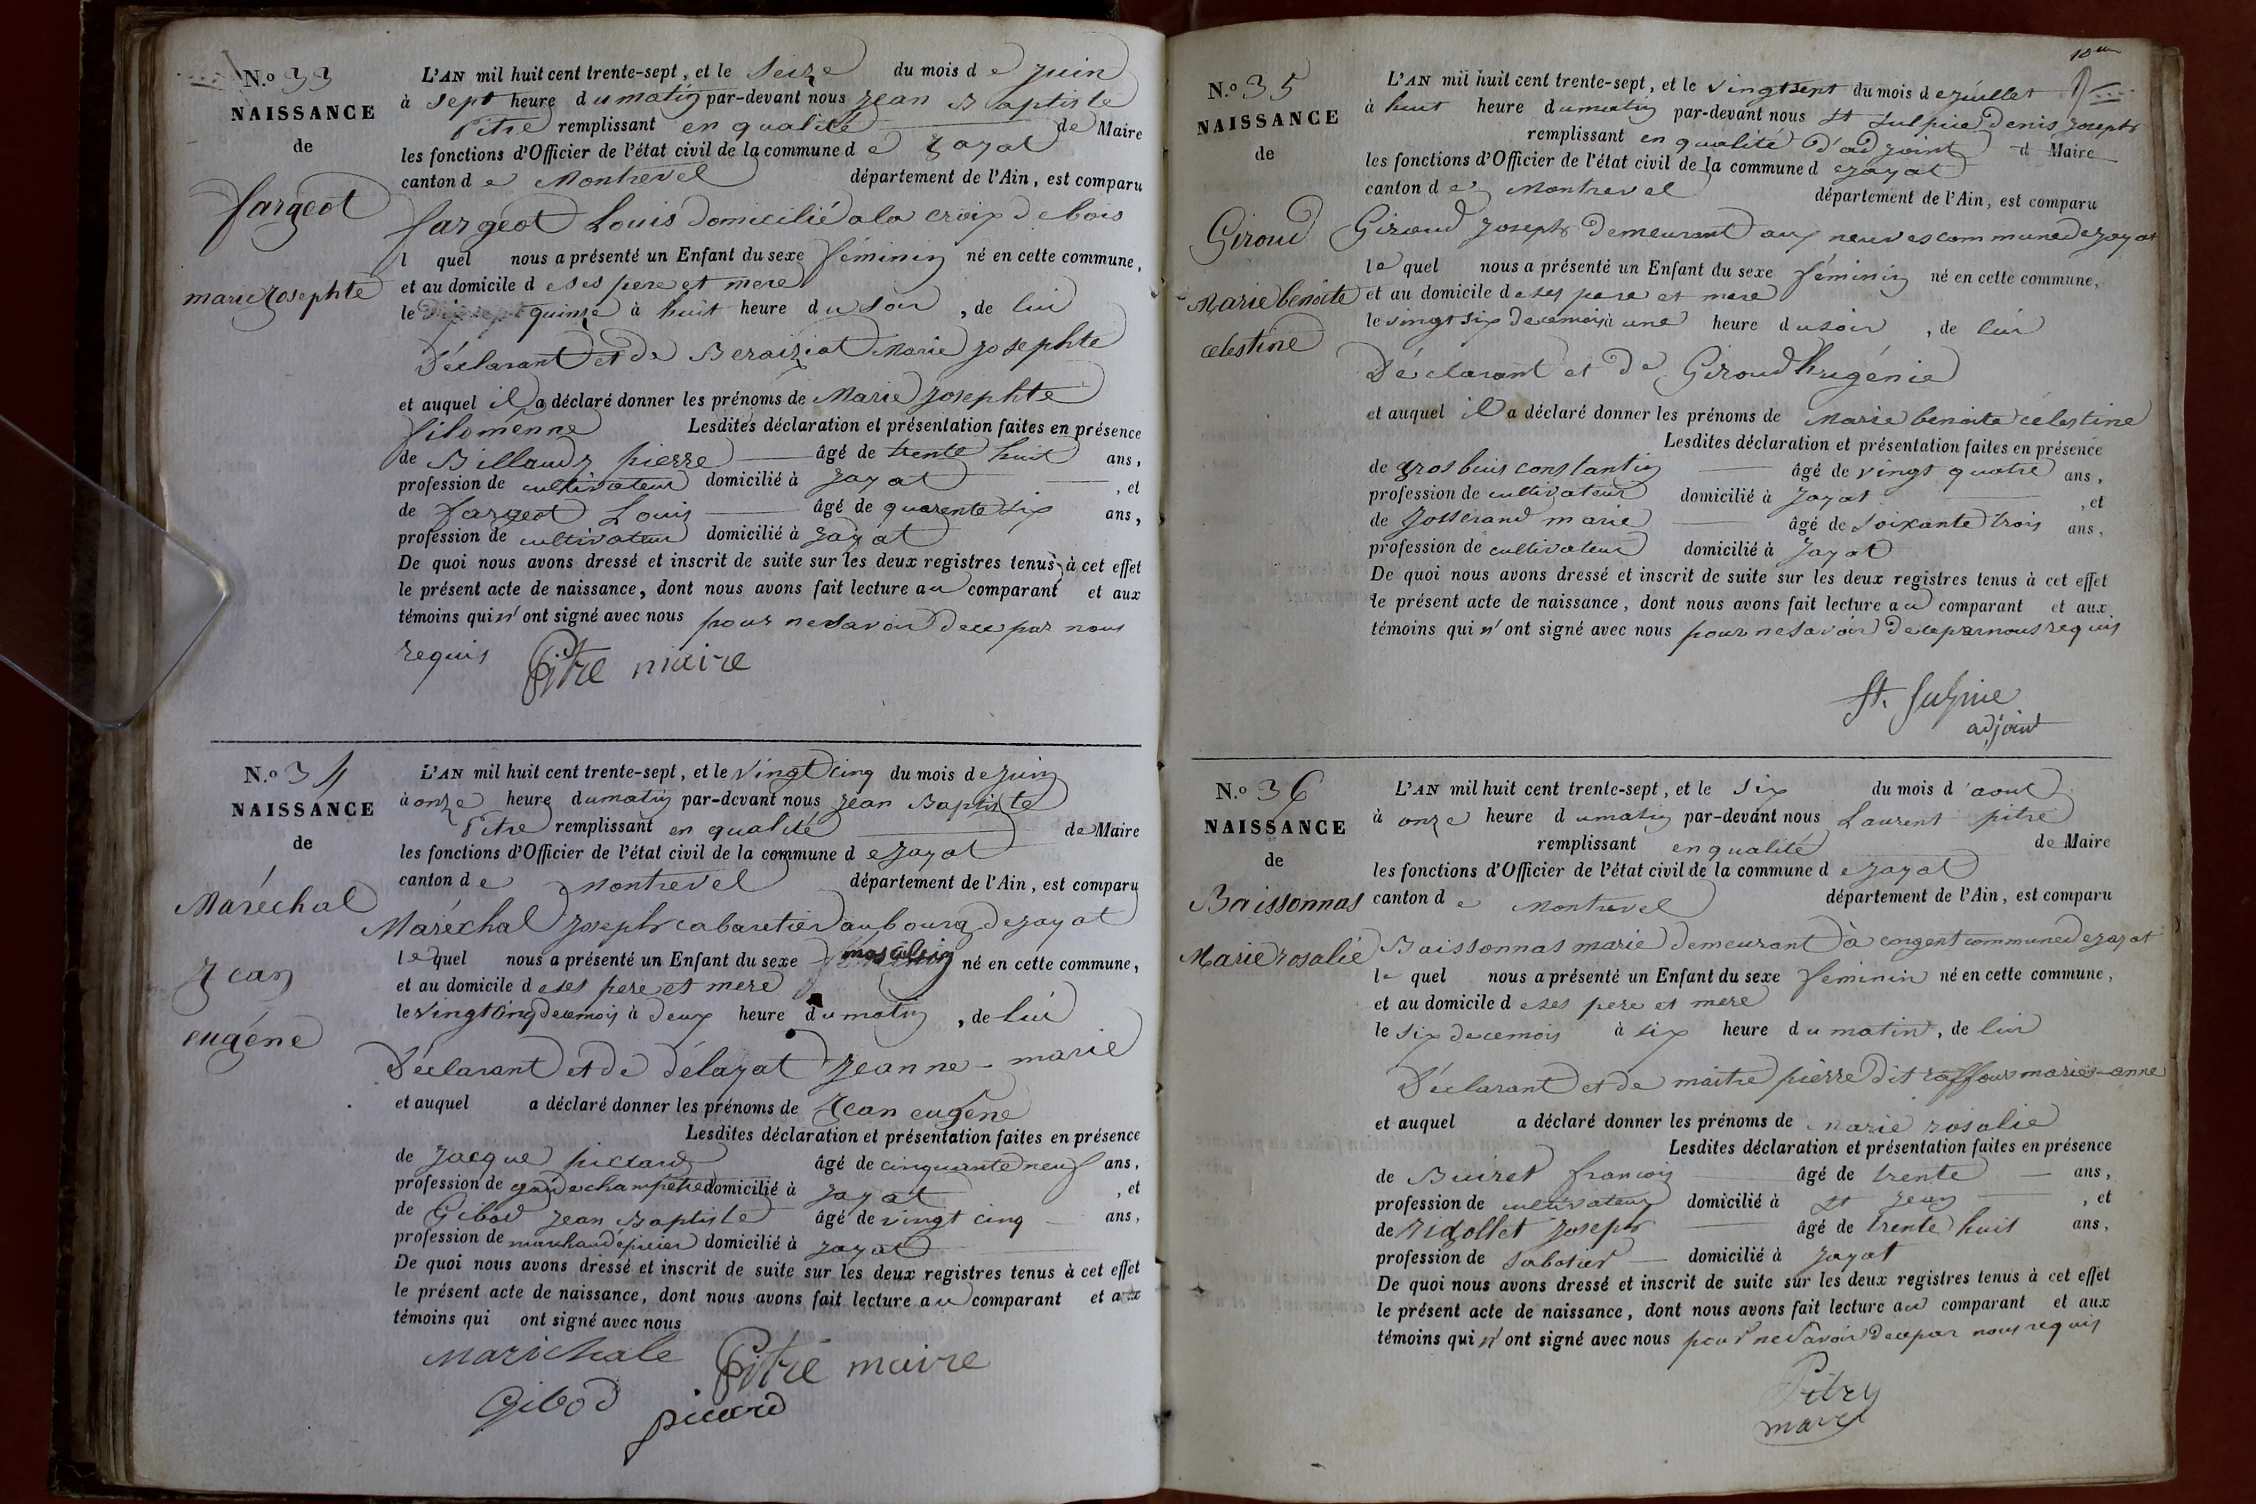 N.o 33
NAISSANCE
de
fargeot
marie Josephte
L'AN mil huit cent trente-sept, et le seize du mois de Juin
à sept heure du matin par-devant nous Jean Baptiste
Pitre remplissant en qualité de Maire
les fonctions d'Officier de l'état civil de la commune de Jayat
canton de Montrevel département de l'Ain, est comparu
fargeot Louis domicilié a la croix de bois
l quel nous a présenté un Enfant du sexe féminin né en cette commune,
et au domicile de ses pere et mere
le quinze à huit heure du soir, de lui
Déclarant et de Beraiziat Marie Josephte
et auquel il a déclaré donner les prénoms de Marie Josephte
filoménne Lesdites déclaration et présentation faites en présence
de Billaudz pierre âgé de trente huit ans,
profession de cultivateur domicilié à Jayat, et
de fargeot Louis âgé de quarente six ans,
profession de cultivateur domicilié à Jayat
De quoi nous avons dressé et inscrit de suite sur les deux registres tenus à cet effet
le présent acte de naissance, dont nous avons fait lecture au comparant et aux
témoins qui n'ont signé avec nous pour ne savoir de ce par nous
requis Pitre maire
N.o 34
NAISSANCE
de
Maréchal
Jean
eugéne
L'AN mil huit cent trente-sept, et le vingt cinq du mois de Juin
à onze heure du matin par-devant nous Jean Baptiste
Pitre remplissant en qualité de Maire
les fonctions d'Officier de l'état civil de la commune de Jayat
canton de Montrevel département de l'Ain, est comparu
Maréchal Joseph cabaretier au bourg de Jayat
le quel nous a présenté un Enfant du sexe masculin né en cette commune,
et au domicile de ses pere et mere
le vingt cinq de ce mois à deux heure du matin, de lui
Déclarant et de délayat Jeanne-marie
et auquel a déclaré donner les prénoms de Jean eugéne
Lesdites déclaration et présentation faites en présence
de Jacque pictard âgé de cinquante neuf ans,
profession de garde champetre domicilié à Jayat, et
de Gibod Jean Baptiste âgé de vingt cinq ans,
profession de marchand épicier domicilié à Jayat
De quoi nous avons dressé et inscrit de suite sur les deux registres tenus à cet effet
le présent acte de naissance, dont nous avons fait lecture au comparant et aux
témoins qui ont signé avec nous
Marichale Pitre maire
Gibod picard
10 em
N.o 35
NAISSANCE
de
Giroud
Marie benoite
celestine
L'AN mil huit cent trente-sept, et le vingt sept du mois de Juillet
à huit heure du matin par-devant nous St Sulpice Denis Joseph
remplissant en qualité d'adjoint d Maire
les fonctions d'Officier de l'état civil de la commune de Jayat
canton de Montrevel département de l'Ain, est comparu
Giroud Joseph demeurant aux neuves commune de Jayat
le quel nous a présenté un Enfant du sexe féminin né en cette commune,
et au domicile de ses pere et mere
le vingt six de ce mois à une heure du soir, de lui
Déclarant et de Giroud
et auquel il a déclaré donner les prénoms de Marie benoite célestine
Lesdites déclaration et présentation faites en présence
de Grosbuis constantin âgé de vingt quatre ans,
profession de cultivateur domicilié à Jayat, et
de Josserand marie âgé de soixante trois ans,
profession de cultivateur domicilié à Jayat
De quoi nous avons dressé et inscrit de suite sur les deux registres tenus à cet effet
le présent acte de naissance, dont nous avons fait lecture au comparant et aux
témoins qui n'ont signé avec nous pour ne savoir de ce par nous requis
St. Sulpice
adjoint
N.o 36
NAISSANCE
de
Baissonnas
Marie rosalié
L'AN mil huit cent trente-sept, et le six du mois d'aout
à onze heure du matin par-devant nous Laurent pitre
remplissant en qualité de Maire
les fonctions d'Officier de l'état civil de la commune de Jayat
canton de Montrevel département de l'Ain, est comparu
Baissonnas marie demeurant à cengent commune de Jayat
le quel nous a présenté un Enfant du sexe féminin né en cette commune,
et au domicile de ses pere et mere
le six de ce mois à six heure du matin, de lui
Déclarant et de maitre pierre dit raffour marie-anne
et auquel a déclaré donner les prénoms de Marie rosalie
Lesdites déclaration et présentation faites en présence
de Buiret francois âgé de trente ans,
profession de cultivateur domicilié à St Jean, et
de Nidollet Joseph âgé de trente huit ans,
profession de sabotier domicilié à Jayat
De quoi nous avons dressé et inscrit de suite sur les deux registres tenus à cet effet
le présent acte de naissance, dont nous avons fait lecture au comparant et aux
témoins qui n'ont signé avec nous pour ne savoir de ce par nous requis
Pitre
maire